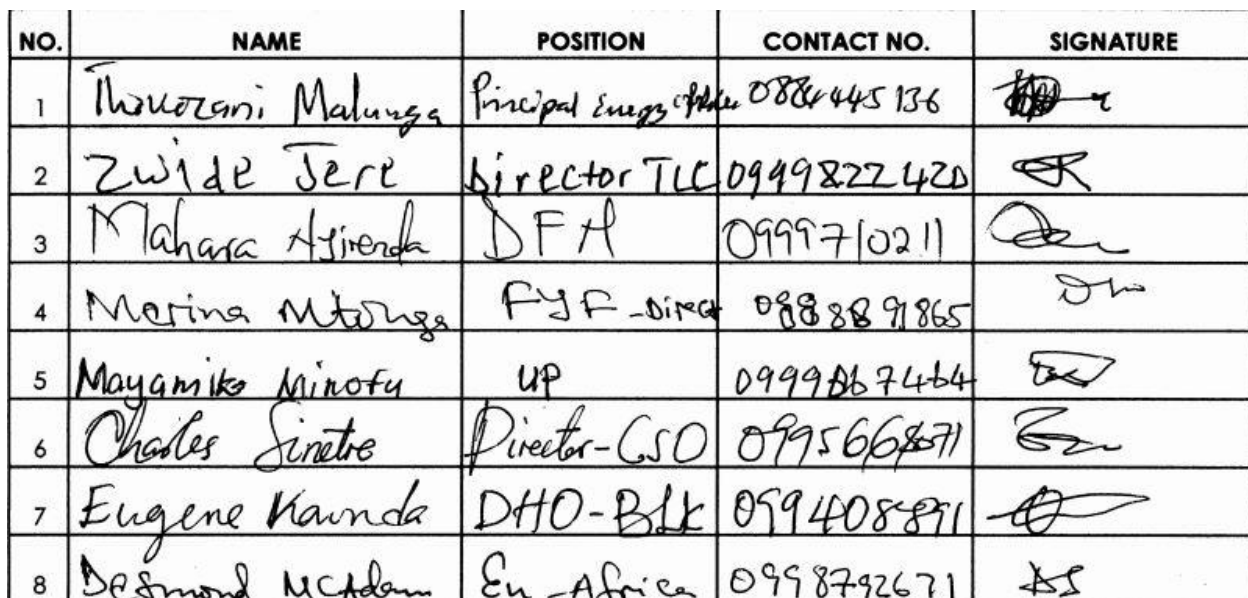 NO. NAME POSITION CONTACT NO. SIGNATURE
1 Thokozani Malunga Principal Energy 0884445136
2 Zwide Jere Director TLC 0999822420
3 Mahara Nyirenda DFH 0999710211
4 Merina Mtonga FYF - Direct 0888891865
5 Mayamiko Minofu UP 0999867464
6 Charles Sinetre Director - CSO
7 Eugene Kaunda DHO - BLK 0994088891
8 Desmond McAdam En - Africa 0998792671